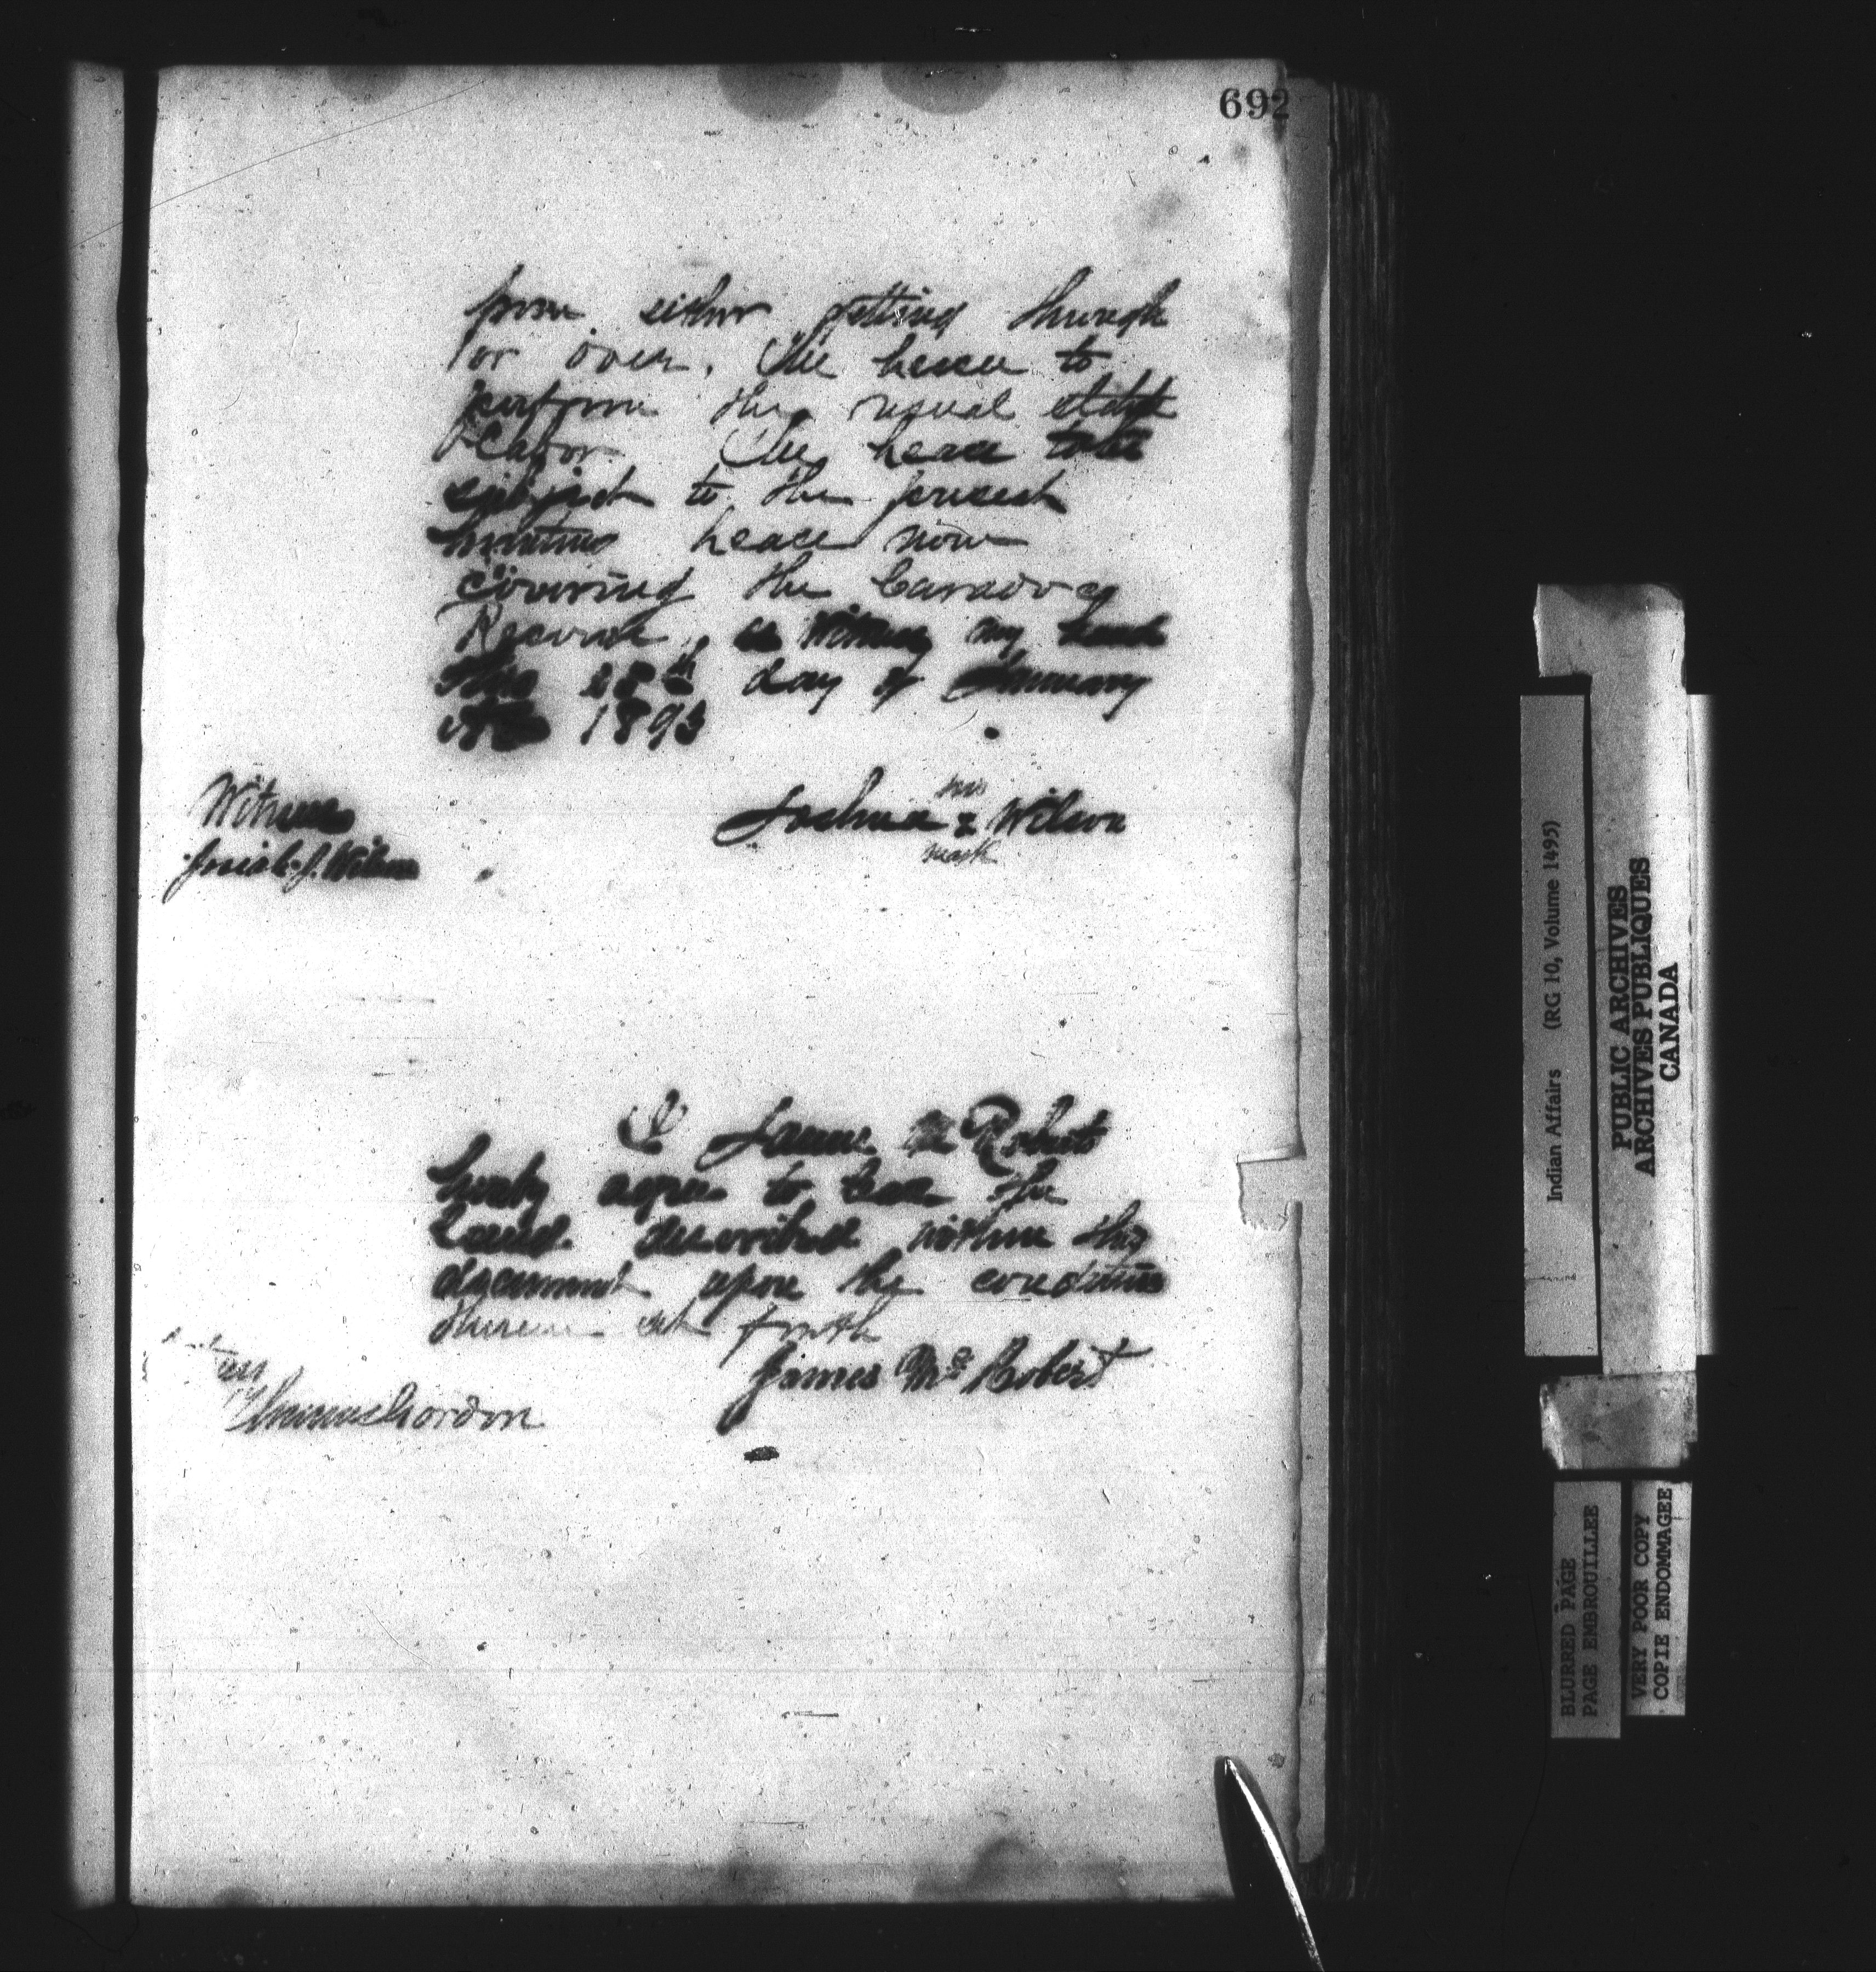 692
from either getting through
or over. The leasee to
perform the usual statute
Labor. The lease to be
subject to the present
hunting lease now
covering the Caradoc
Reserve, as Witness my hand
this 28th day of January
AD 1893
Witness
Josiah J. Wilson
his
Joshua x Wilson
mark
I James McRoberts
hereby agree to lease the
Land described within this
document upon the conditions
therein set forth
James McRobert
Thomas Gordon
Indian Affairs (RG 10, Volume 1495)
PUBLIC ARCHIVES
ARCHIVES PUBLIQUES
CANADA
BLURRED PAGE
PAGE EMBROUILLEE
VERY POOR COPY
COPIE ENDOMMAGEE